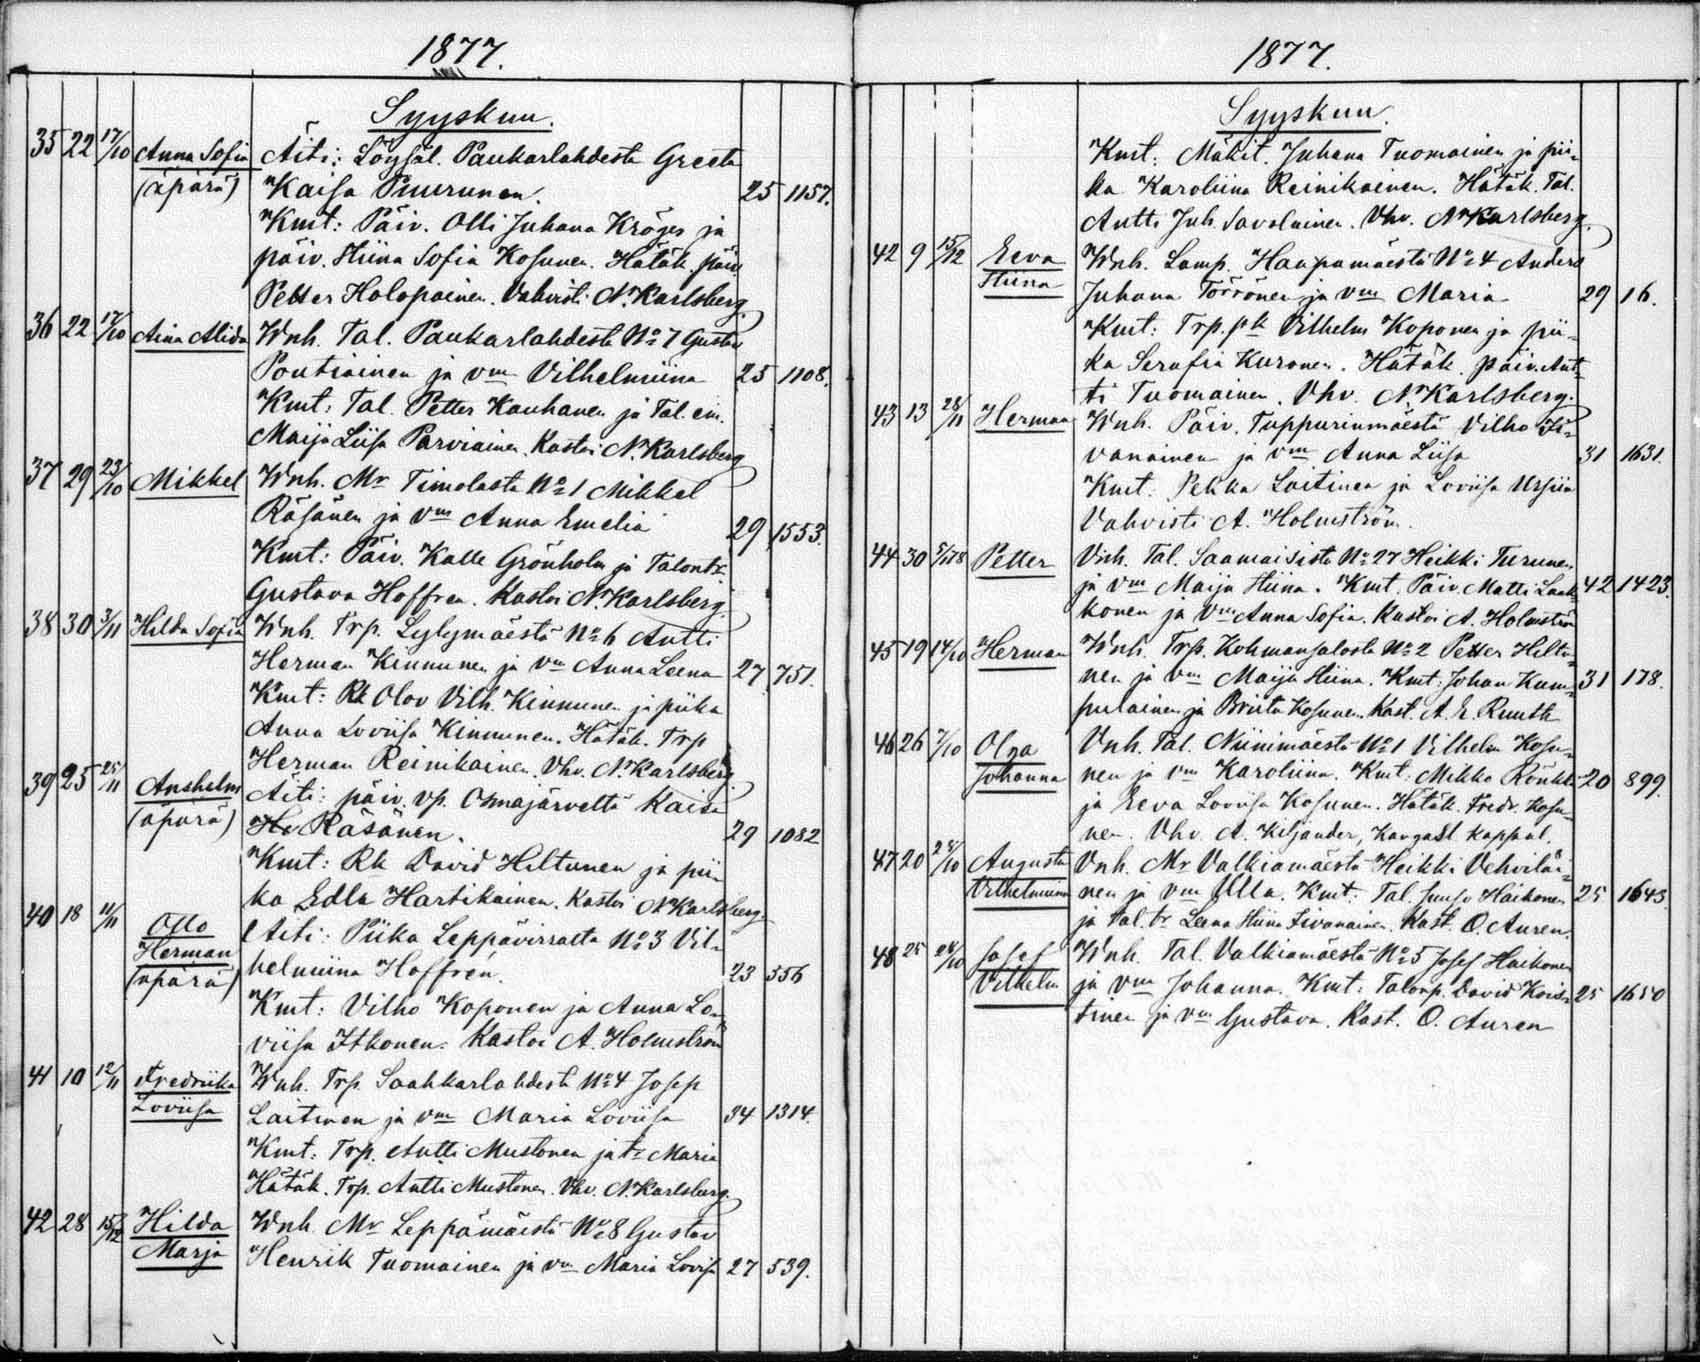 1877.
Syyskuu.
35 22 17/10 Anna Sofia Äiti: Löysäl. Paukarlahdesta Greeta
(äpärä) Kaisa Puurunen. 25 1157.
Kmt: Päiv. Olli Juhana Kröger ja
päiv. Hiina Sofia Kosunen. Hätäk. päiv
Petter Holopainen. Vahvisti N. Karlsberg.
36 22 17/10 Aina Alida Wnh. Tal. Paukarlahdesta No 7 Gustav
Pontiainen ja vm Vilhelmiina 25 1108.
Kmt: Tal. Petter Kauhanen ja Tal. em.
Maija Liisa Parviainen. Kastoi N. Karlsberg
37 29 23/10 Mikkel Wnh. Mr Timolasta No 1 Mikkel
Räsänen ja vm Anna Emelia 29 1553.
Kmt: Päiv. Kalle Grönholm ja Talontr
Gustava Hoffren. Kastoi N. Karlsberg.
38 30 3/11 Hilda Sofia Wnh. Trp. Lylymäestä No 6 Antti
Herman Kinnunen ja vm Anna Leena 27 751.
Kmt: Rk Olov Vilh. Kinnunen ja piika
Anna Loviisa Kinnunen. Hätäk. Trp
Herman Reinikainen. Vhv. N. Karlsberg.
39 25 25/11 Anshelm Äiti: päiv. vp. Osmajärveltä Kaisa
(äpärä) Hv Räsänen. 29 1082
Kmt: Rk David Hiltunen ja pii-
ka Edla Hartikainen. Kastoi N Karlsberg.
40 18 11/11 Otto Äiti: Piika Leppävirralta No 3 Vil-
Herman helmiina Hoffrén. 23 556
(äpärä)
Kmt: Vilho Koponen ja Anna Lo-
viisa Itkonen. Kastoi A. Holmström
41 10 12/11 Fredriika Wnh. Trp. Saahkarlahdesta No 4 Josep
Loviisa Laitinen ja vm Maria Loviisa 34 1314.
Kmt: Trp. Antti Mustonen ja tr Maria
Hätäk. Trp. Antti Mustonen. Vhv. N. Karlsberg.
42 28 15/12 Hilda Wnh. Mr Leppämäestä No 8 Gustav
Marja Henrik Tuomainen ja vm Maria Lovisa 27 539.
1877.
Syyskuu.
Kmt: Mäkit. Juhana Tuomainen ja pii-
ka Karoliina Reinikainen. Hätäk. Tal.
Antti Juh. Savolainen. Vhv. N Karlsberg.
42 9 15/12 Eeva Wnh. Lamp. Haapamäestä No 4 Anders
Hiina Juhana Törrönen ja vm Maria 29 16.
Kmt: Trp. pk Vilhelm Koponen ja pii-
ka Serafia Kuronen. Hätäk. päiv. Ant-
ti Tuomainen. Vhv. N. Karlsberg.
43 13 28/11 Herman Wnh. Päiv. Tuppurinmäestä Vilho Ii-
vanainen ja vm Anna Liisa 31 1631.
Kmt: Pekka Laitinen ja Loviisa Ursiin
Vahvisti A. Holmström.
44 30 5/1 78 Petter Vnh. Tal. Saamaisista No 27 Heikki Turunen
ja vm Maija Hiina. Kmt. Päiv. Matti Laak- 42 1423.
konen ja vm Anna Sofia. Kastoi A. Holmström
45 19 14/10 Herman Wnh. Trp. Kohmansalosta No 2 Petter Hiltu-
nen ja vm Maija Hiina. Kmt: Johan Kum- 31 178.
pulainen ja Briita Kosunen. Kast. A. E. Ruuth
46 26 7/10 Olga Vnh. Tal. Niinimäestä No 1 Vilhelm Kosu-
Johanna nen ja vm Karoliina. Kmt: Mikko Rönkkö 20 899.
ja Eeva Loviisa Kosunen. Hätäk. Fredr. Kosu-
nen. Vhv. A. Kiljander, Kangasl. kappal.
47 20 28/10 Augusta Vnh. Mr Valkiamäestä Heikki Vehviläi-
Vilhelmiina nen ja vm Ulla. Kmt: Tal. Juuso Häikonen 25 1643.
ja tal. tr Leena Hiina Iivanainen. Kast. O. Auren.
48 25 28/10 Josef Wnh. Tal. Valkiamäestä No 5 Josef Häikonen
Vilhelm ja vm Johanna. Kmt: Talonp. David Kois- 25 1650
tinen ja vm Gustava. Kast. O. Auren